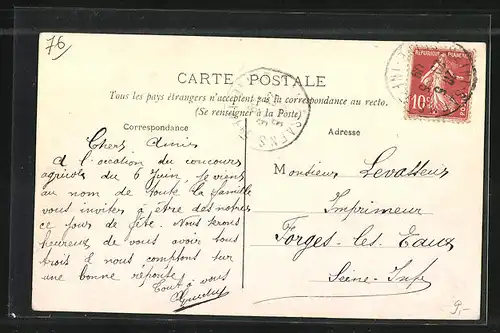 76
CARTE POSTALE
Tous les pays étrangers n'acceptent pas la correspondance au recto.
(Se renseigner à la Poste)
REPUBLIQUE FRANÇAISE
10c
SAENS
Correspondance
Adresse
Chers Amis
A l'occation du concours
agricole du 6 Juin, je viens
au nom de toute la famille
vous inviter à être des notres
ce jour de fête. Nous serons
heureux de vous avoir tous
trois & nous comptons sur
une bonne réponse.
Tout à vous
Monsieur Levasseur
Imprimeur
Forges-les-Eaux
Seine-Infre
9,-